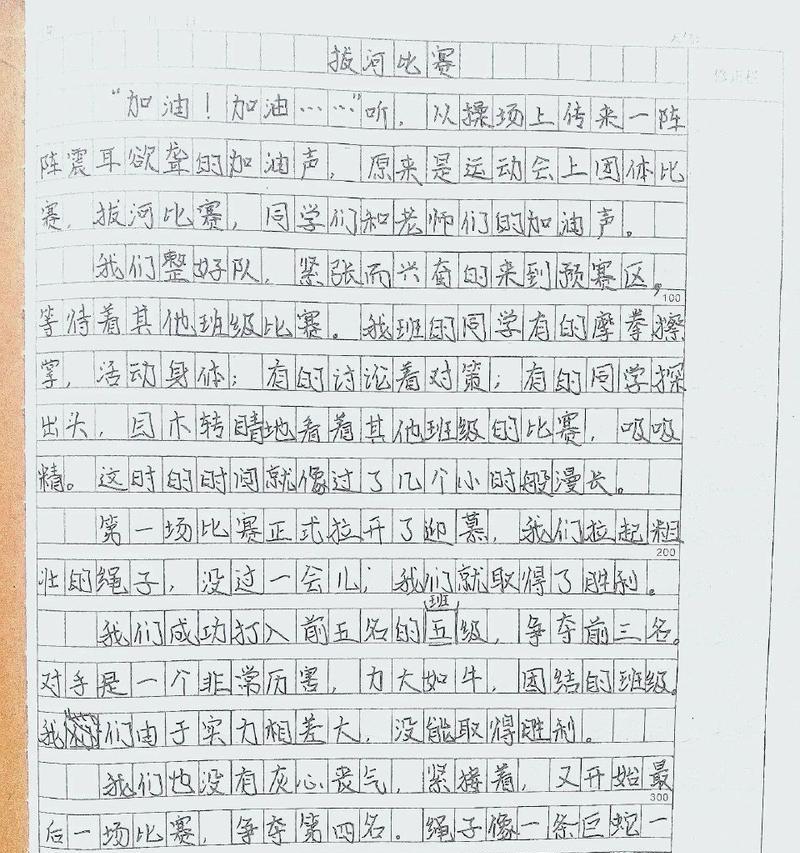 拔河比赛
“加油！加油……”听，从操场上传来一阵
阵震耳欲聋的加油声，原来是运动会上团体比
赛，拔河比赛，同学们和老师们的加油声。
我们整好队，紧张而兴奋的来到预赛区，
100
等待着其他班级比赛。我班的同学有的摩拳擦
掌，活动身体；有的讨论着对策；有的同学探
出头，目不转睛地看着其他班级的比赛，吸吸
精。这时的时间就像过了几个小时般漫长。
第一场比赛正式拉开了迎幕，我们拉起粗
200
壮的绳子，没过一会儿；我们就取得了胜利。
班
我们成功打入前五名的五级，争夺前三名。
对手是一个非常厉害，力大如牛，团结的班级。
我们由于实力相差大，没能取得胜利。
我们也没有灰心丧气，紧接着，又开始最
300
后一场比赛，争夺第四名。绳子像一条巨蛇一